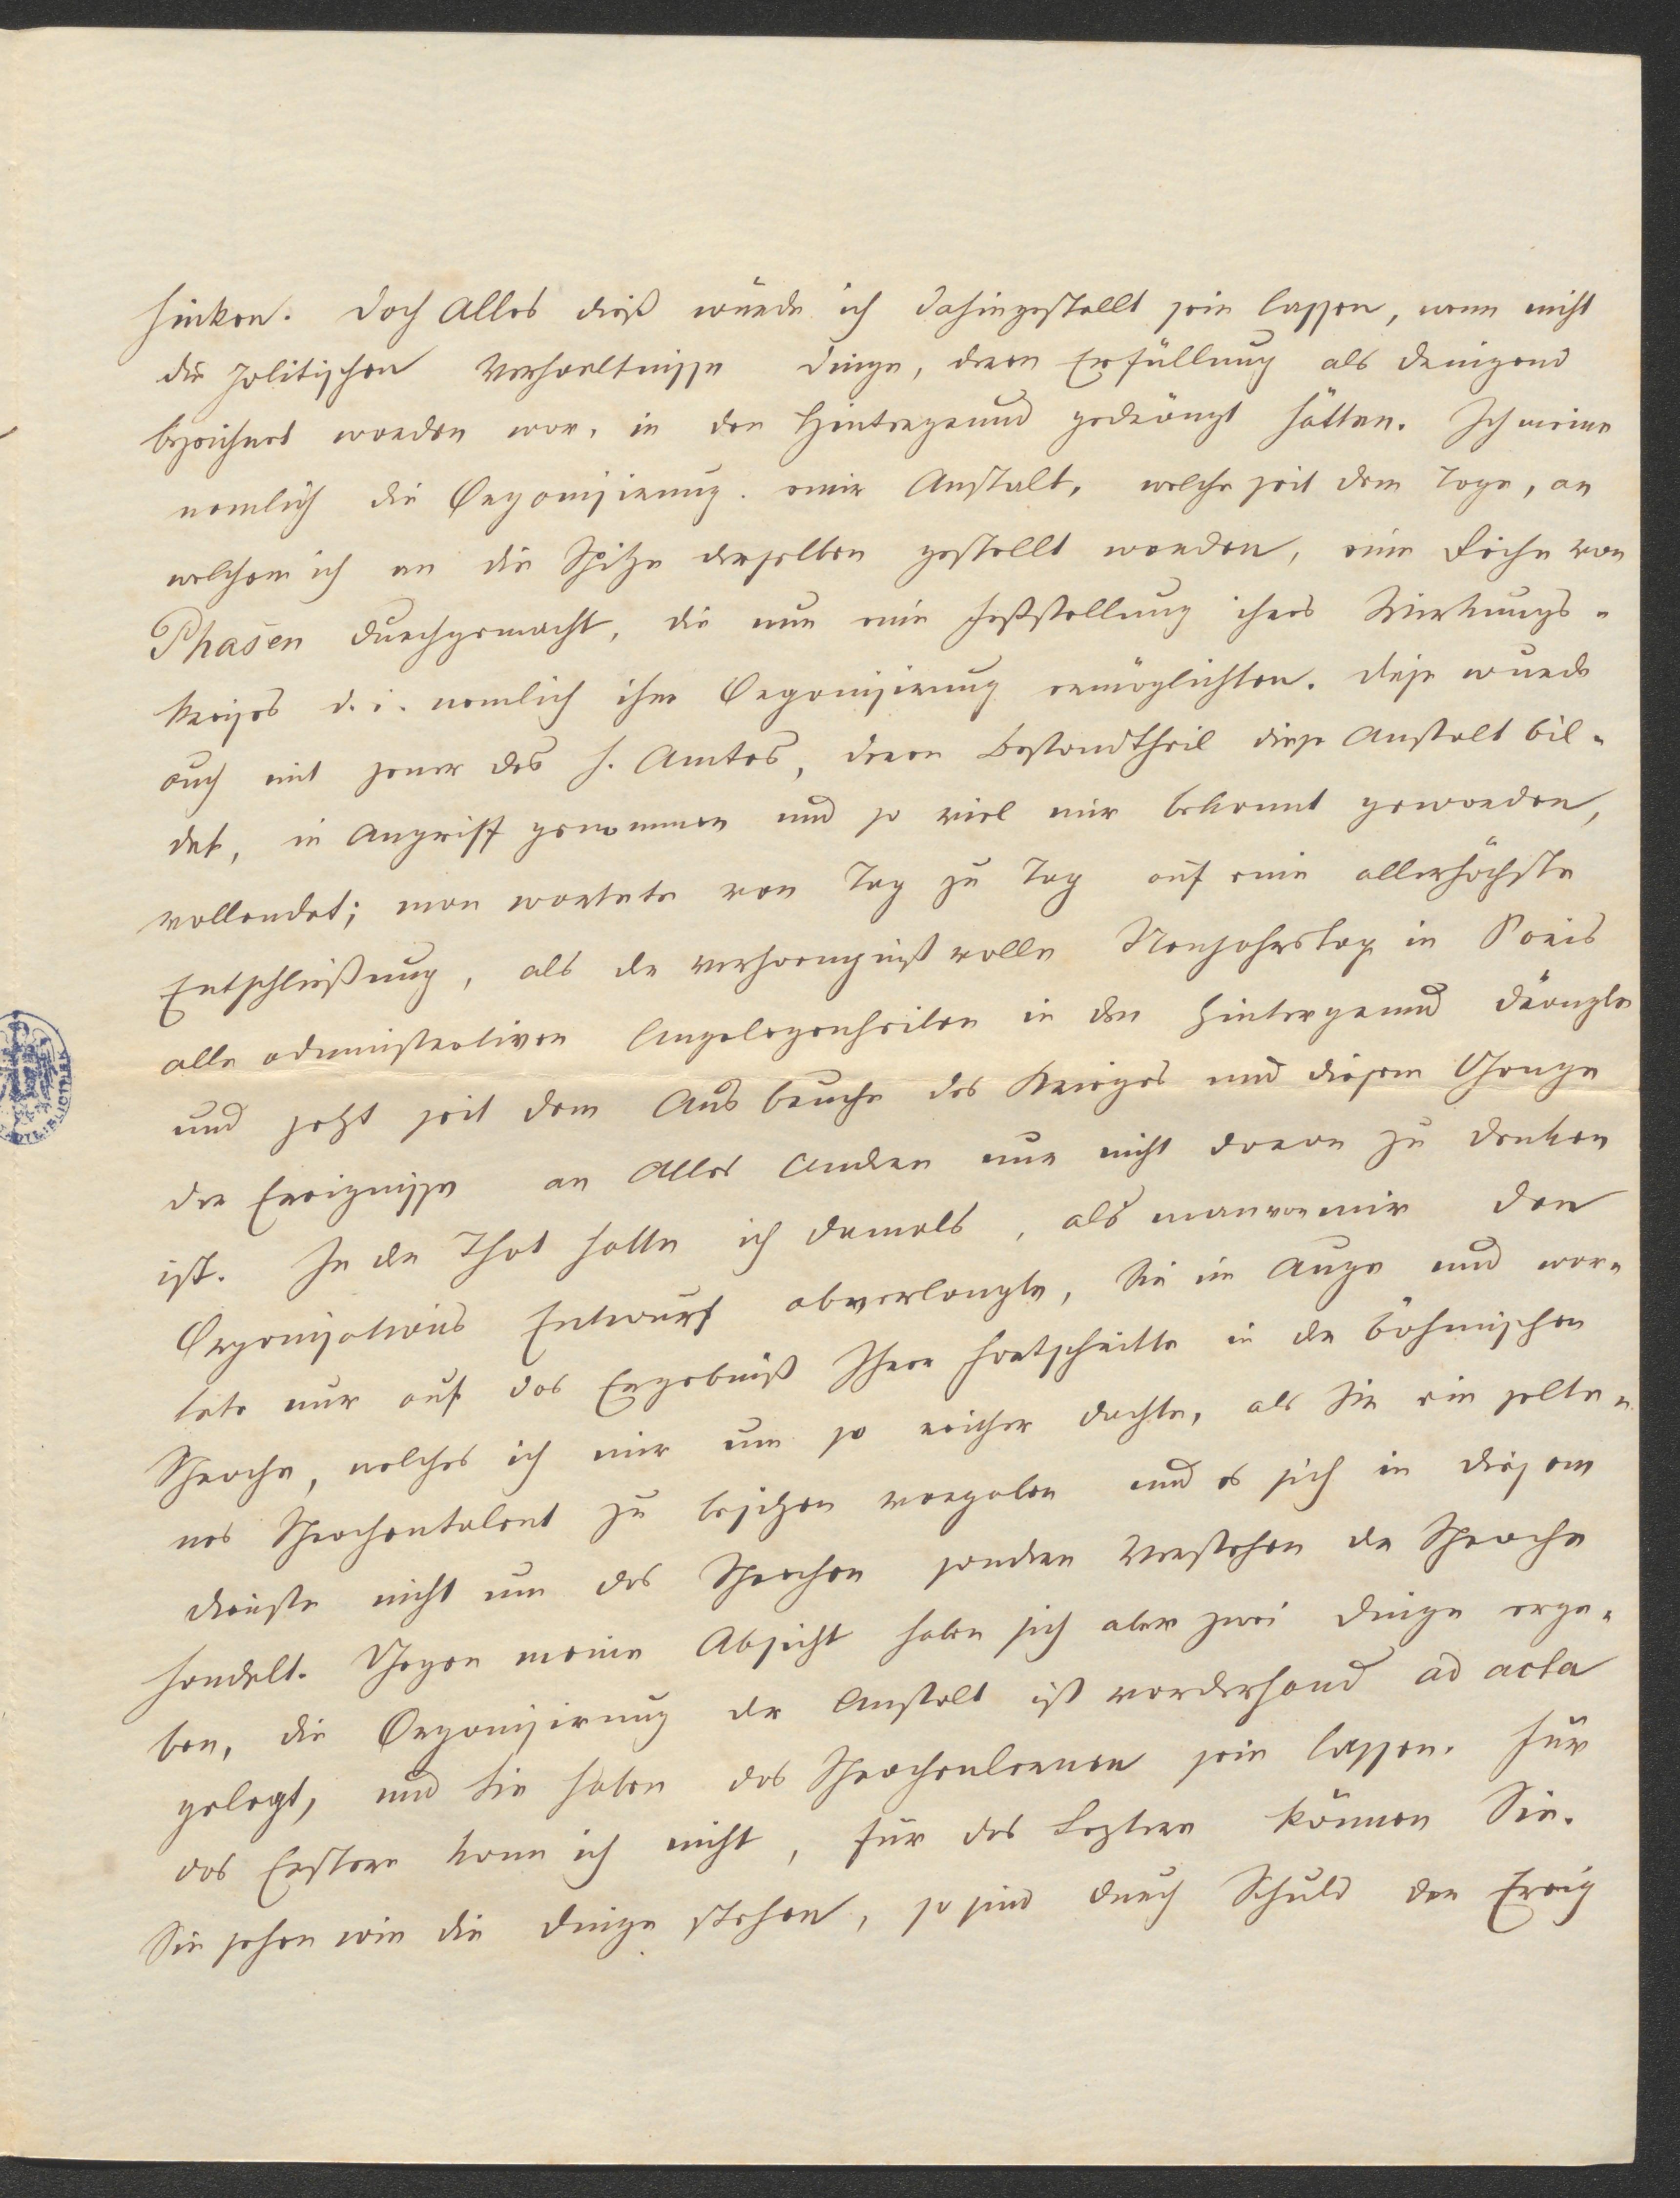 hinken. Doch Alles dieß würde ich dahingestellt sein lassen, wenn nicht
die politischen Verhaeltnisse Dinge, deren Erfüllung als dringend
bezeichnet worden war, in den Hintergrund gedrängt hätten. Ich meine
nemlich die Organisirung einer Anstalt, welche seit dem Tage, an
welchem ich an die Spitze derselben gestellt worden, eine Reihe von
Phasen durchgemacht, die nun eine Feststellung ihres Wirkungs-
kreises d. i. nemlich ihre Organisirung ermöglichten. Diese wurde
auch mit jener des h. Amtes, deren Bestandtheil diese Anstalt bil-
det, in Angriff genommen und so viel mir bekannt geworden,
vollendet; man wartete von Tag zu Tag auf eine allerhöchste
Entschließung, als der verhaengnißvolle Neujahrstag in Paris
alle administrativen Angelegenheiten in den Hintergrund drängte
und jetzt seit dem Ausbruche des Krieges und diesem Gange
der Ereignisse an Alles Andere nur nicht daran zu denken
ist. In der That hatte ich damals, als man von mir den
Organisations Entwurf abverlangte, Sie im Auge und war-
tete nur auf das Ergebniß Ihrer Fortschritte in der böhmischen
Sprache, welches ich mir um so reicher dachte, als Sie ein selte-
nes Sprachentalent zu besitzen vorgaben und es sich in diesem
Dienste nicht um das Sprechen sondern Verstehen der Sprache
handelt. Gegen meine Absicht haben sich aber zwei Dinge erge-
ben, die Organisirung der Anstalt ist vorderhand ad acta
gelegt, und Sie haben das Sprachenlernen sein lassen. Für
das Erstere kann ich nicht, für das Leztere können Sie.
Sie sehen wie die Dinge stehen, so sind durch Schuld der Ereig